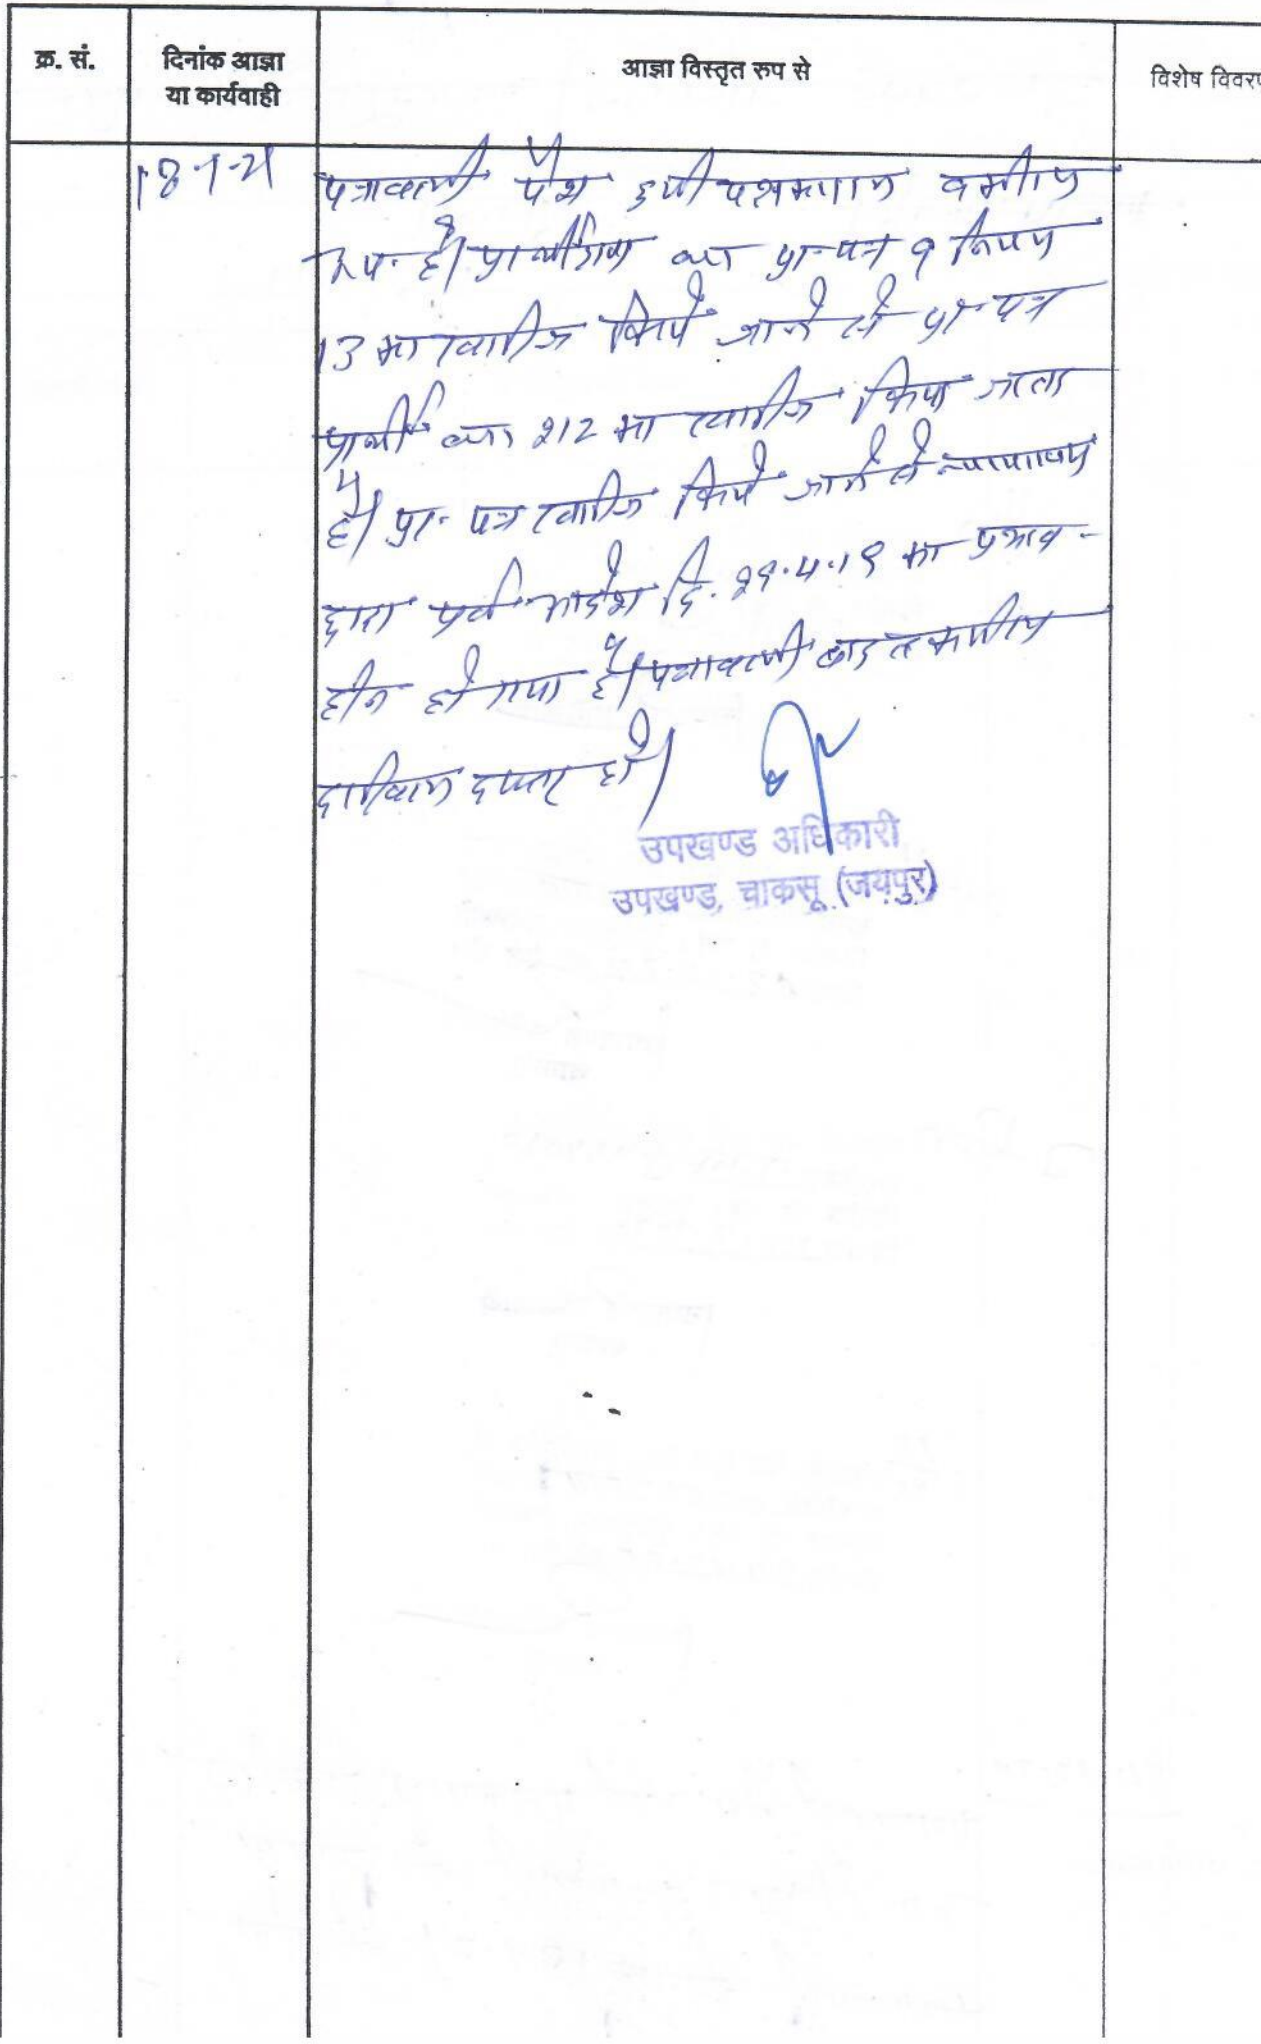 क्र. सं.
दिनांक आज्ञा
या कार्यवाही
आज्ञा विस्तृत रुप से
विशेष विवर
18-1-21
पत्रावली पेश हुयी पक्षकारान वकील
उप. है। प्रार्थीगण का प्रा-पत्र 9 नियम
13 का खारीज किये जाने से प्रा-पत्र
प्रार्थी का 212 का खारीज किया जाता
है। प्रा- पत्र खारीज किये जाने से न्यायालय
द्वारा पूर्व आदेश दि. 29.4.19 का प्रभाव-
हीन हो गया है। पत्रावली बाद तकमील
दाखिल दफ्तर हो।
उपखण्ड अधिकारी
उपखण्ड, चाकसू (जयपुर)